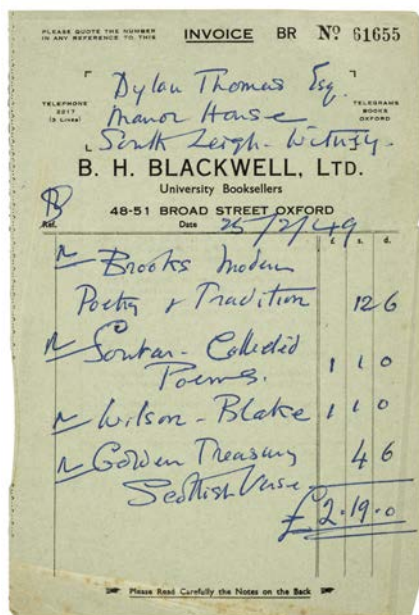 PLEASE QUOTE THE NUMBER
IN ANY REFERENCE TO THIS
INVOICE BR Nº 61655
Dylan Thomas Esq.
TELEPHONE
2217
(5 Lines)
Manor House
TELEGRAMS
BOOKS
OXFORD
South Leigh - Witney.
B. H. BLACKWELL, LTD.
University Booksellers
48-51 BROAD STREET OXFORD
Ref. Date 25/2/49
£ s. d.
N Brooks Modern
Poetry & Tradition 12 6
N Soutar - Collected
Poems. 1 1 0
N Wilson - Blake 1 1 0
N Golden Treasury 4 6
Scottish Verse
£2.19.0
Please Read Carefully the Notes on the Back